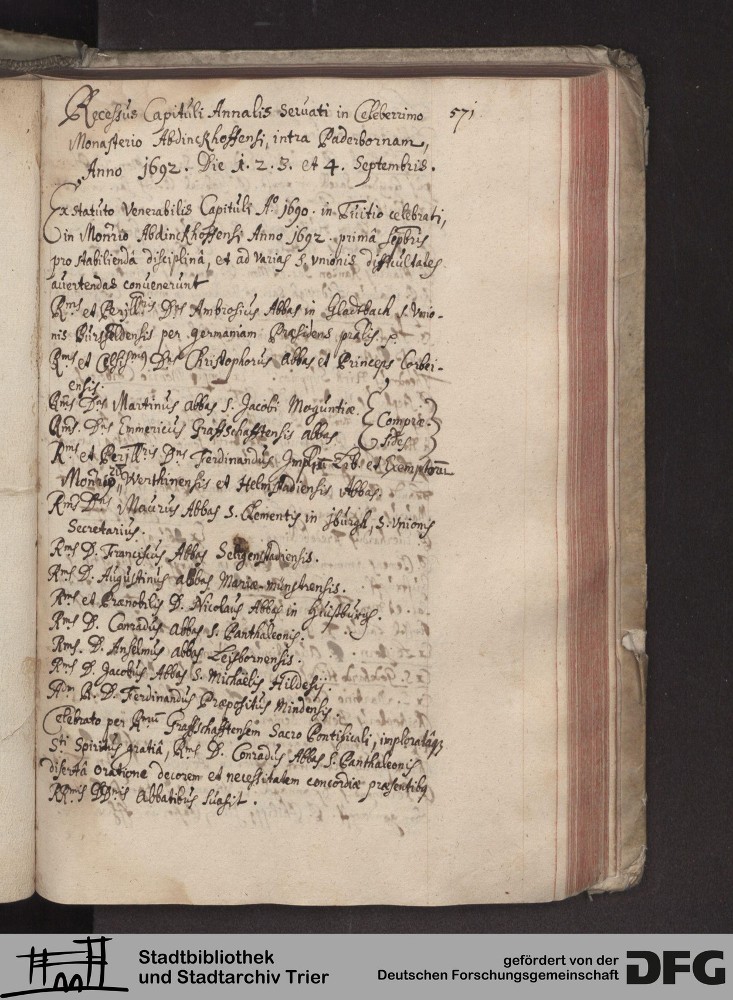 Recessus Capituli Annalis servati in Celeberrimo
571
Monasterio Abdinckhoffensi, intra Paderbornam,
Anno 1692. Die 1. 2. 3. et 4. Septembris.
Ex statuto Venerabilis Capituli Aº 1690. in Tuitio celebrati,
in Monrio Abdinckhoffensi Anno 1692. prima Septbris
pro stabilienda disciplinâ, et ad varias S. Unionis difficultates
avertendas convenerunt
Rms et Perjllris Dns Ambrosius Abbas in Gladtbach S. Unio-
nis Bursfeldensis per germaniam Præsidens
Rms et Celsismus Dns Christophorus Abbas et Princeps Corbei-
ensis.
Rms Dns Martinus abbas S. Jacobi Moguntiæ
Rms. Dns Emmericus Graffschafftensis abbas
Compræ-
sides
Rms et Perjllris Dns Ferdinandus Imp. Lib. et Exemptorū
Monrioru Werthinensis et Helmstadiensis Abbas.
Rms Dns Maurus Abbas S. Clementis in jburgh, S. Unionis
Secretarius.
Rms D. Franciscus Abbas Seligenstadiensis.
Rms D. Augustinus abbas Mariæ-münstrensis.
Rms et Prænobilis D. Nicolaus Abbas in Huisburgh.
Rms D. Conradus Abbas S. Panthaleonis.
Rms. D. Anselmus abbas Leisbornensis.
Rms D. Jacobus Abbas S. Michaelis Hildesij.
Adm R. D. Ferdinandus Præpositus Mindensis.
Celebrato per Rmū Graffschafftensem Sacro Pontificali, implorataq3
Sti Spiritus gratiâ, Rms D. Conradus Abbas S. Panthaleonis
disertâ oratione decorem et necessitatem concordiæ præsentibq
RRmis DDnis Abbatibus suasit.
Stadtbibliothek
und Stadtarchiv Trier
gefördert von der
Deutschen Forschungsgemeinschaft
DFG